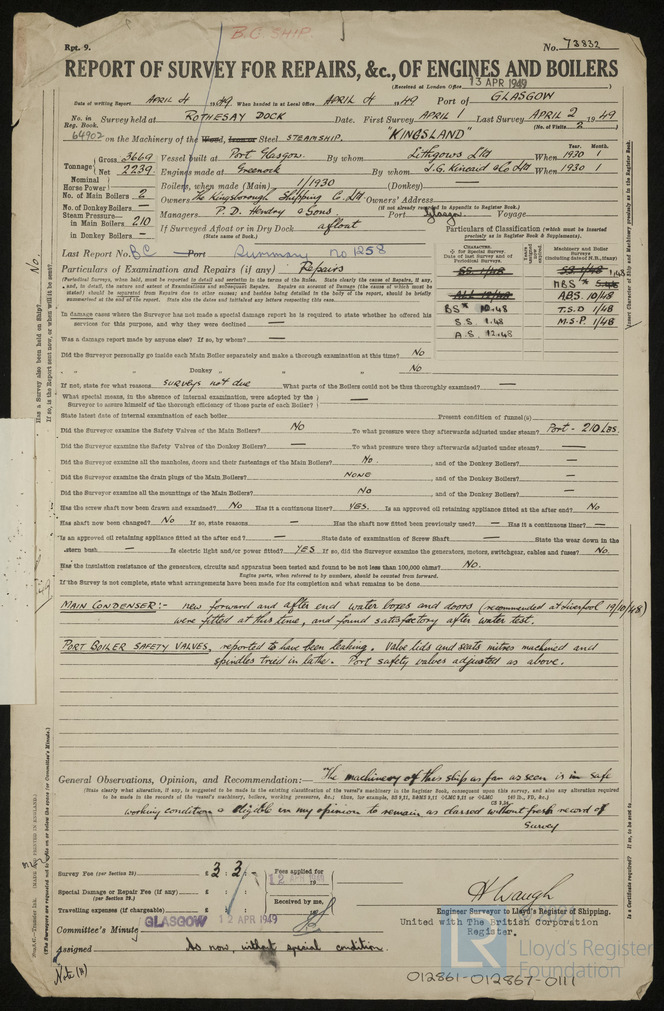 B.C. SHIP.
Rpt. 9.
No. 73832
REPORT OF SURVEY FOR REPAIRS, &c., OF ENGINES AND BOILERS
(Received at London Office 13 APR 1949
Date of writing Report APRIL 4 1949. When handed in at Local Office APRIL 4 1949 Port of GLASGOW
No. in Reg. Book. Survey held at ROTHESAY DOCK Date. First Survey APRIL 1 Last Survey APRIL 2 1949
(No. of Visits 2 )
64902 on the Machinery of the Wood, Iron or Steel STEAMSHIP. "KINGSLAND"
Tonnage Gross 3669 Net 2239
Vessel built at Port Glasgow. By whom Lithgows Ltd When 1930 1
Year. Month.
Engines made at Greenock By whom J.G. Kincaid & Co Ltd When 1930 1
Nominal Horse Power
Boilers, when made (Main) 1/1930 (Donkey) —
No. of Main Boilers 2
Owners The Kingsborough Shipping Co. Ltd Owners' Address
(if not already recorded in Appendix to Register Book.)
No. of Donkey Boilers —
Managers P. D. Hendry & Sons. Port Glasgow. Voyage
Steam Pressure— in Main Boilers 210
in Donkey Boilers —
If Surveyed Afloat or in Dry Dock afloat
(State name of Dock.)
Particulars of Classification (which must be inserted precisely as in Register Book & Supplements).
CHARACTER.
Machinery and Boiler Surveys
Last Report No. BC Port Summary no 1258
SS 1/48
ALL 12/48
BS* 10.48
S.S. 1.48
A.S. 12.48
MBS*
ABS. 10/48
T.S.D 1/48
M.S.P. 1/48
Particulars of Examination and Repairs (if any) Repairs
(Periodical Surveys, when held, must be reported in detail and seriatim in the terms of the Rules. State clearly the causes of Repairs, if any,
In damage cases where the Surveyor has not made a special damage report he is required to state whether he offered his
services for this purpose, and why they were declined —
Was a damage report made by anyone else? If so, by whom? —
Did the Surveyor personally go inside each Main Boiler separately and make a thorough examination at this time? No
" " Donkey " " " " No
If not, state for what reasons surveys not due What parts of the Boilers could not be thus thoroughly examined? —
What special means, in the absence of internal examination, were adopted by the
Surveyor to assure himself of the thorough efficiency of those parts of each Boiler? —
State latest date of internal examination of each boiler Present condition of funnel(s)
Did the Surveyor examine the Safety Valves of the Main Boilers? No To what pressure were they afterwards adjusted under steam? Port - 210 Lbs.
Did the Surveyor examine the Safety Valves of the Donkey Boilers? — To what pressure were they afterwards adjusted under steam? —
Did the Surveyor examine all the manholes, doors and their fastenings of the Main Boilers? No , and of the Donkey Boilers? —
Did the Surveyor examine the drain plugs of the Main Boilers? NONE , and of the Donkey Boilers? —
Did the Surveyor examine all the mountings of the Main Boilers? No , and of the Donkey Boilers? —
Has the screw shaft now been drawn and examined? No Has it a continuous liner? YES. Is an approved oil retaining appliance fitted at the after end? No
Has shaft now been changed? No If so, state reasons — Has the shaft now fitted been previously used? — Has it a continuous liner? —
Is an approved oil retaining appliance fitted at the after end? — State date of examination of Screw Shaft — State the wear down in the
stern bush — Is electric light and/or power fitted? YES If so, did the Surveyor examine the generators, motors, switchgear, cables and fuses? No.
Has the insulation resistance of the generators, circuits and apparatus been tested and found to be not less than 100,000 ohms? No.
Engine parts, when referred to by numbers, should be counted from forward.
If the Survey is not complete, state what arrangements have been made for its completion and what remains to be done
MAIN CONDENSER:- new forward and after end water boxes and doors (recommended at Liverpool 19/10/48)
were fitted at this time, and found satisfactory after water test.
PORT BOILER SAFETY VALVES, reported to have been leaking. Valve lids and seats mitres machined and
spindles tried in lathe. Port safety valves adjusted as above.
General Observations, Opinion, and Recommendation:— The machinery of this ship as far as seen is in safe
(State clearly what alteration, if any, is suggested to be made to the existing classification of the vessel's machinery in the Register Book, consequent upon this survey, and also any alteration required
to be made in the records of the vessel's machinery, boilers, working pressures, &c.;
working condition & eligible in my opinion to remain as classed without fresh record of
Survey
Survey Fee (per Section 29) £ 3 : 3 : -
Fees applied for
12 APR 1949
Special Damage or Repair Fee (if any) £
(per Section 29.)
Received by me,
Travelling expenses (if chargeable) £
H Waugh
Engineer Surveyor to Lloyd's Register of Shipping.
United with The British Corporation
Register.
Committee's Minute GLASGOW 12 APR 1949
Assigned As now, without special condition.
Note (B)
LR
Lloyd's Register
Foundation
012861-012867-0111